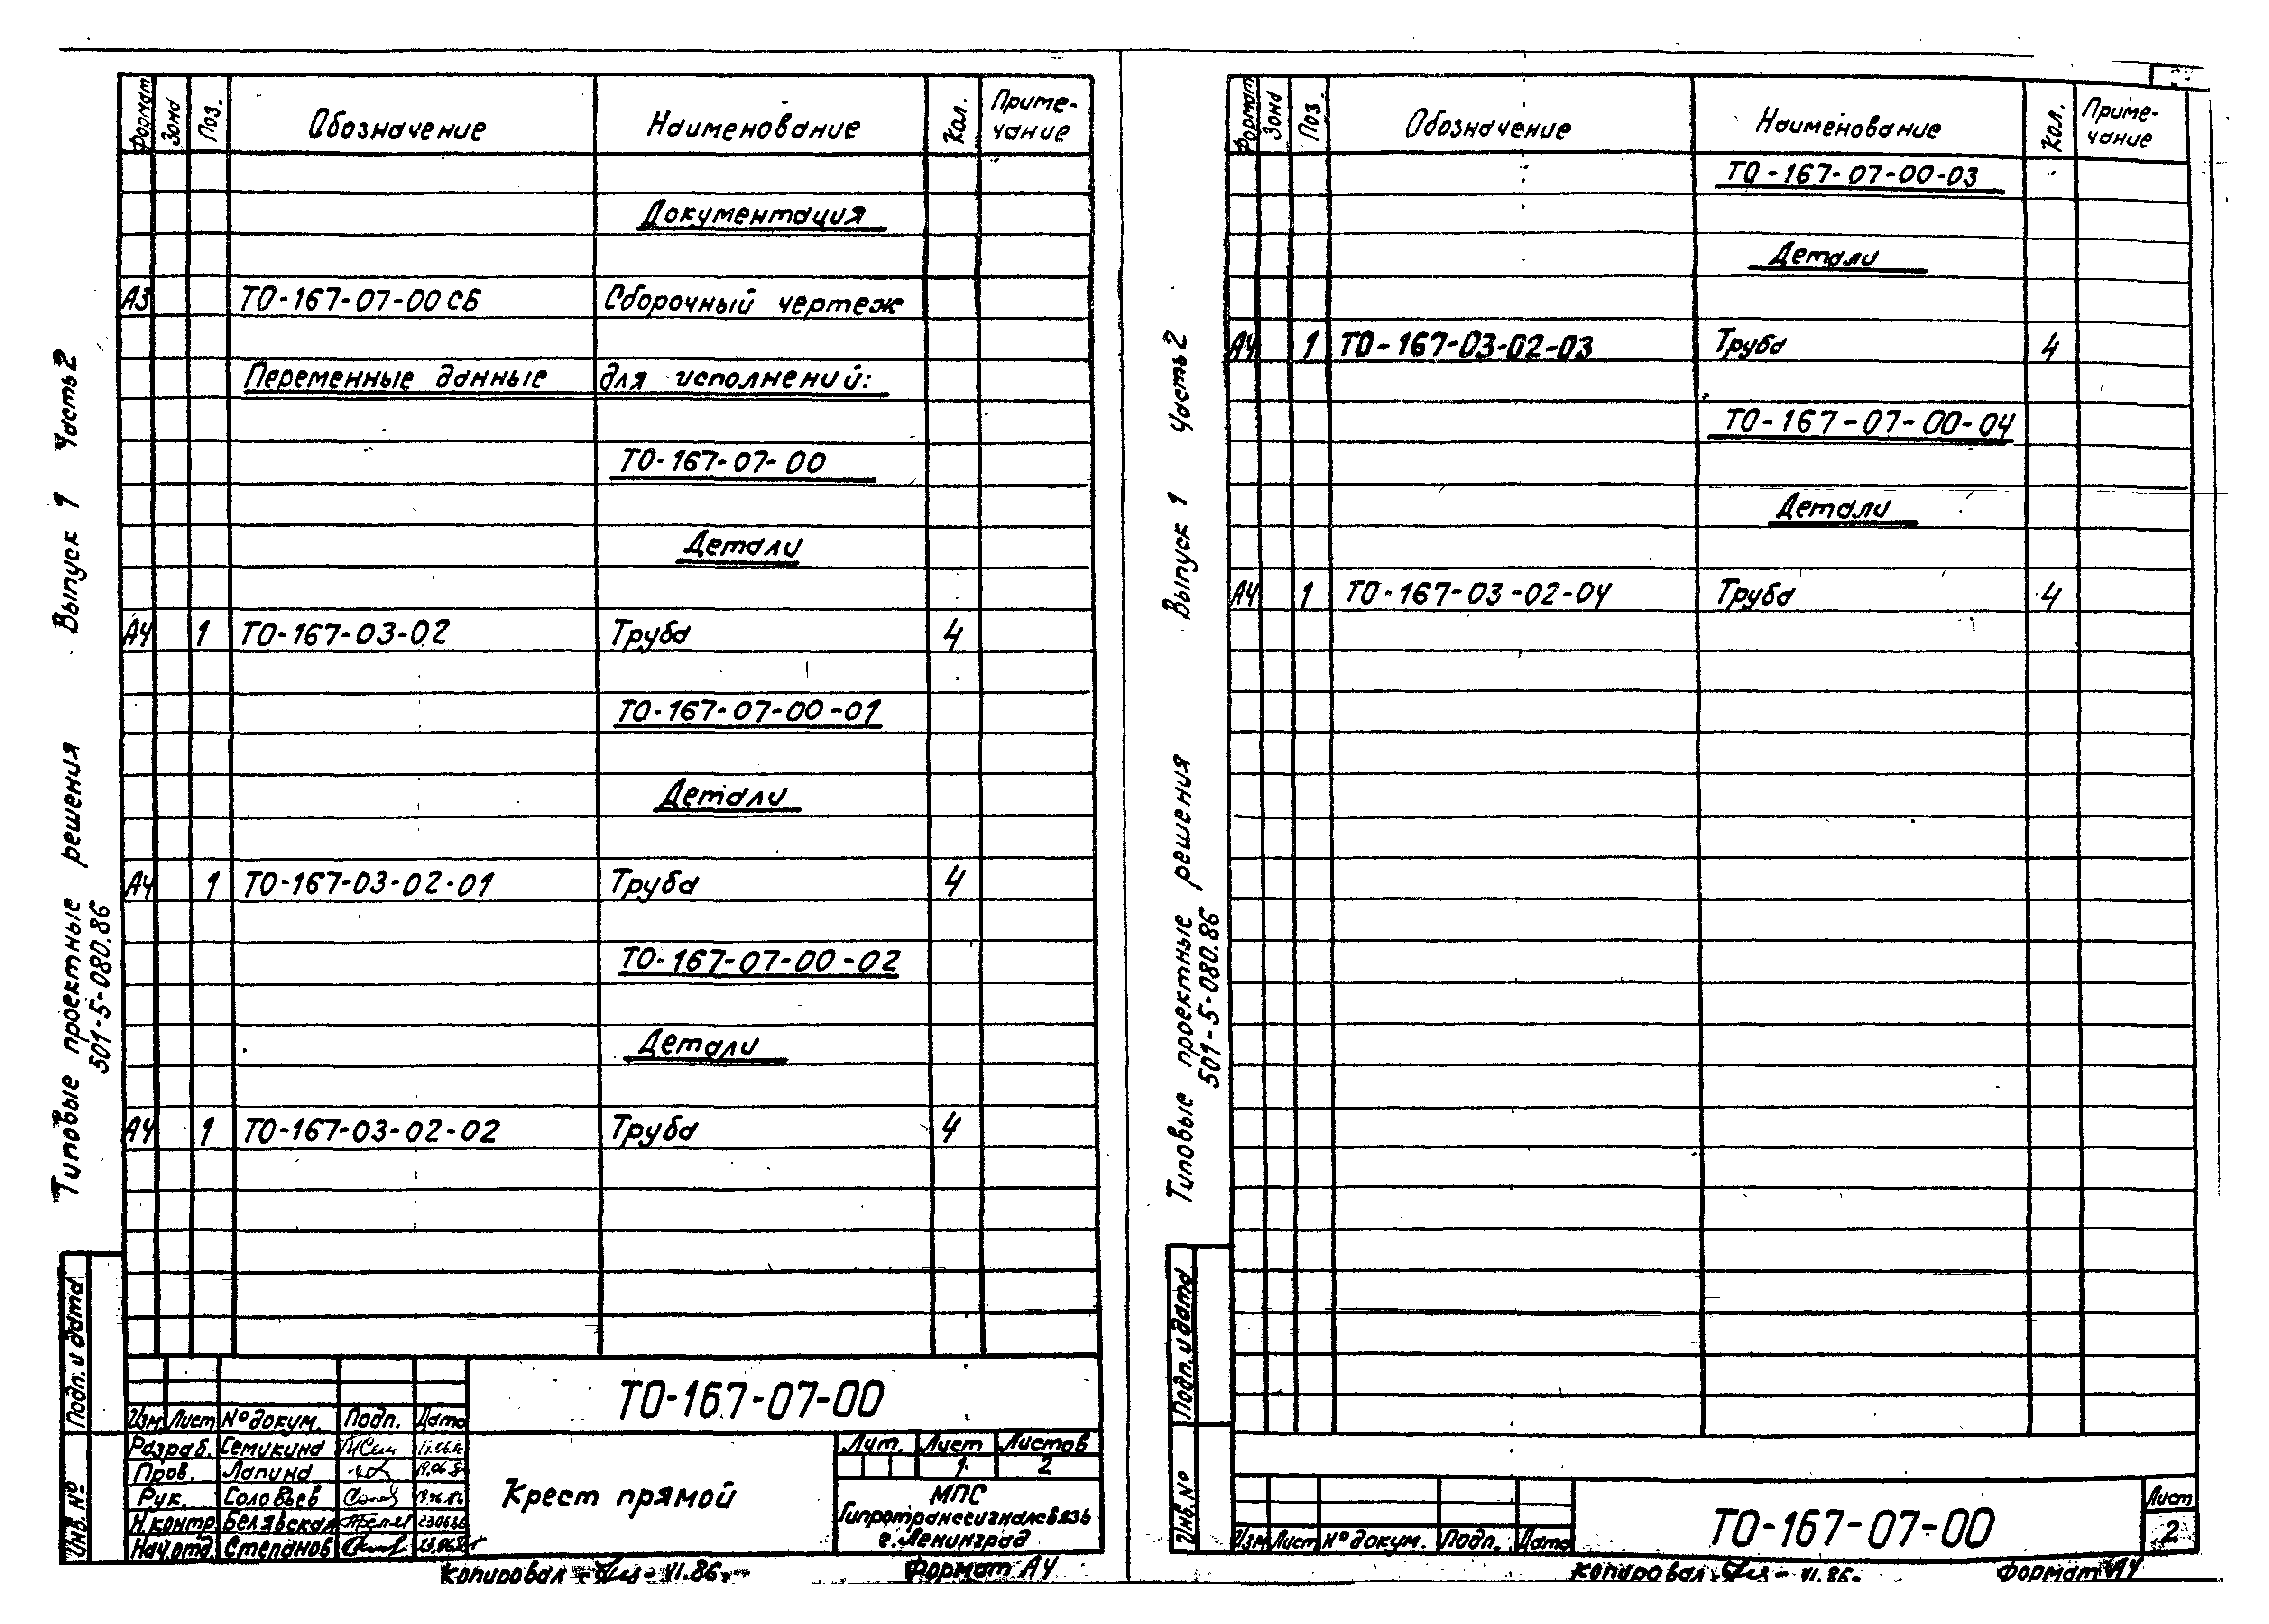 Типовые проектные решения Выпуск 1 Часть 2
501-5-080.86
Формат Зона Поз. Обозначение Наименование Кол. Приме-
чание
Документация
А3 ТО-167-07-00 СБ Сборочный чертеж
Переменные данные для исполнений:
ТО-167-07-00
Детали
А4 1 ТО-167-03-02 Труба 4
ТО-167-07-00-01
Детали
А4 1 ТО-167-03-02-01 Труба 4
ТО-167-07-00-02
Детали
А4 1 ТО-167-03-02-02 Труба 4
Подп. и дата
Инв. №
ТО-167-07-00
Изм. Лист № докум. Подп. Дата
Разраб. Семикина
Пров. Лапина
Рук. Соловьев
Н.контр. Белявская 23.06.86
Нач.отд. Степанов
Крест прямой
Лит. Лист Листов
1 2
МПС
Гипротранссигналсвязь
г. Ленинград
Копировал VI.86 Формат А4
Типовые проектные решения Выпуск 1 Часть 2
501-5-080.86
Формат Зона Поз. Обозначение Наименование Кол. Приме-
чание
ТО-167-07-00-03
Детали
А4 1 ТО-167-03-02-03 Труба 4
ТО-167-07-00-04
Детали
А4 1 ТО-167-03-02-04 Труба 4
Подп. и дата
Инв. №
Изм. Лист № докум. Подп. Дата
ТО-167-07-00
Лист
2
Копировал VI.86 Формат А4